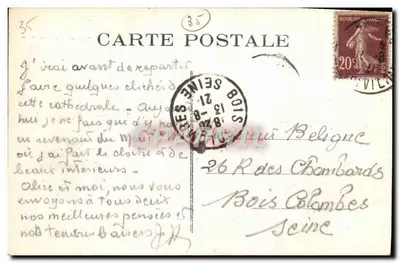 35
35
CARTE POSTALE
J'irai avant de repartir
faire quelques clichés de
cette cathédrale - Aujourd
hui je ne fais que d'y
en revenant du Mont
où j'ai fait le cloître et de
beaux intérieurs.
Alice et moi, nous vous
envoyons à tous deux
nos meilleures pensées et
nos tendres baisers
REPUBLIQUE FRANCAISE
20c
BOIS COLOMBES SEINE
13-8
21
Monsieur Beligue
26 R des Chambards
Bois Colombes
Seine